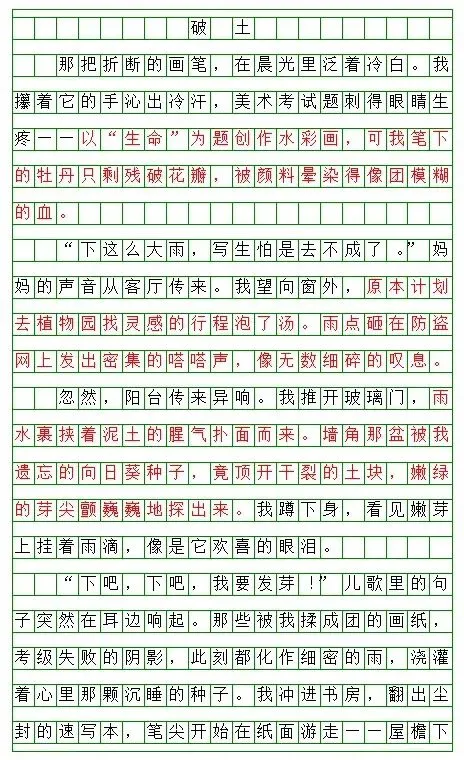 破土
那把折断的画笔，在晨光里泛着冷白。我
攥着它的手沁出冷汗，美术考试题刺得眼睛生
疼——以“生命”为题创作水彩画，可我笔下
的牡丹只剩残破花瓣，被颜料晕染得像团模糊
的血。
“下这么大雨，写生怕是去不成了。”妈
妈的声音从客厅传来。我望向窗外，原本计划
去植物园找灵感的行程泡了汤。雨点砸在防盗
网上发出密集的嗒嗒声，像无数细碎的叹息。
忽然，阳台传来异响。我推开玻璃门，雨
水裹挟着泥土的腥气扑面而来。墙角那盆被我
遗忘的向日葵种子，竟顶开干裂的土块，嫩绿
的芽尖颤巍巍地探出来。我蹲下身，看见嫩芽
上挂着雨滴，像是它欢喜的眼泪。
“下吧，下吧，我要发芽！”儿歌里的句
子突然在耳边响起。那些被我揉成团的画纸，
考级失败的阴影，此刻都化作细密的雨，浇灌
着心里那颗沉睡的种子。我冲进书房，翻出尘
封的速写本，笔尖开始在纸面游走——屋檐下